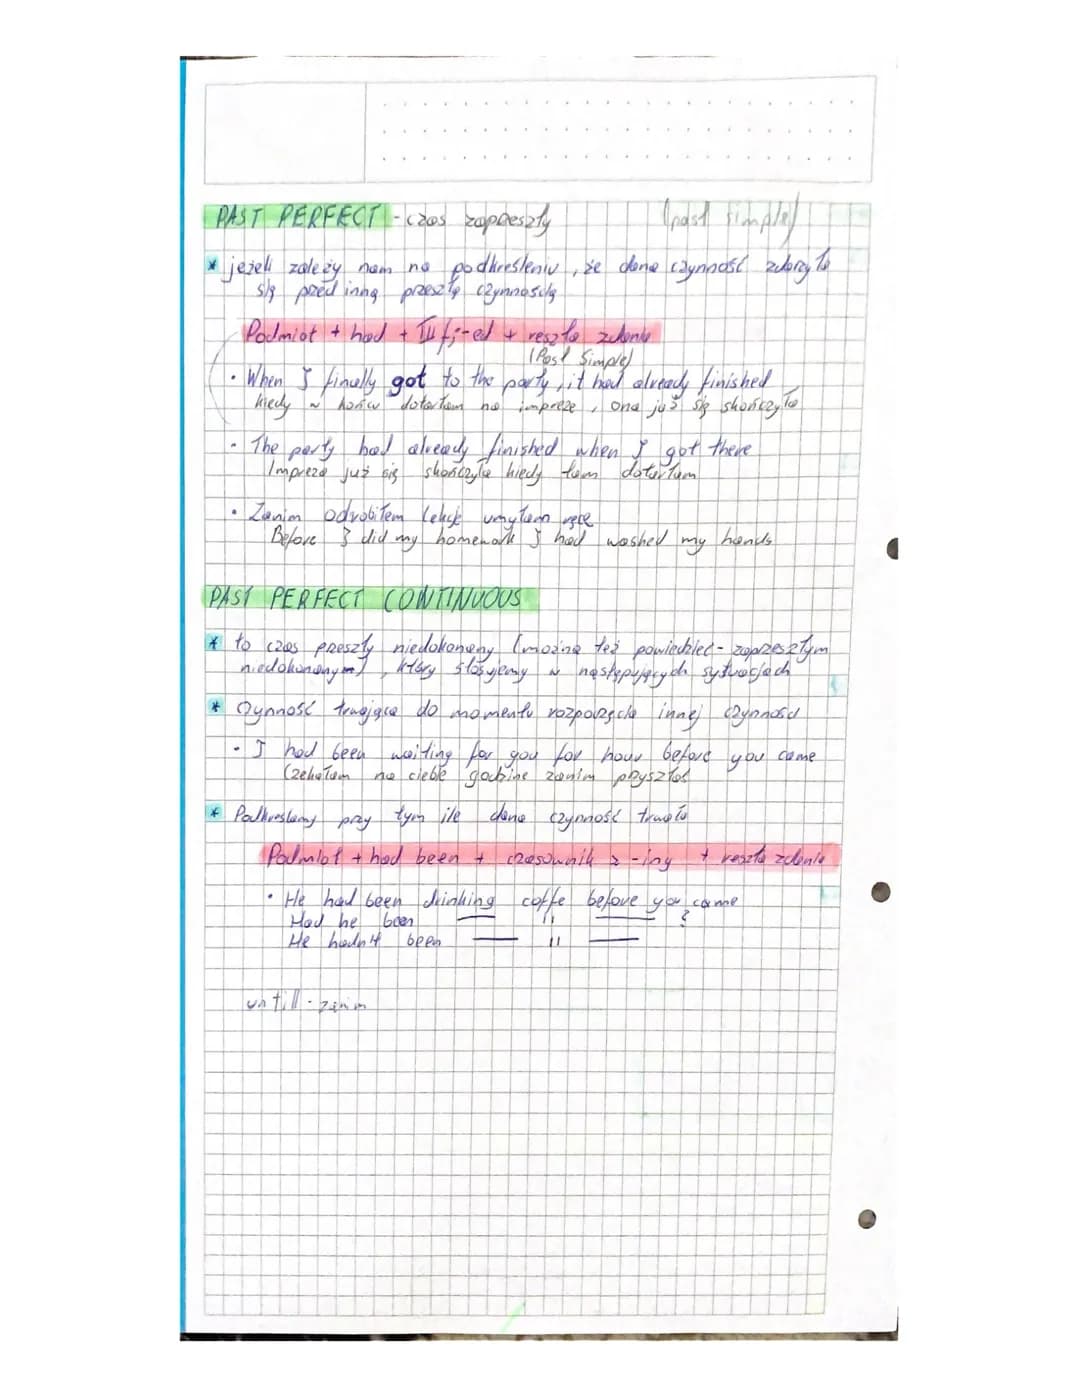 PAST PERFECT - czas zaprzeszły (past simple)
* jeżeli zależy nam na podkreśleniu, że dana czynność zdarzyła
się przed inną przeszłą czynnością
Podmiot + had + III f;-ed + reszta zdania
(Past Simple)
• When I finally got to the party, it had already finished
kiedy w końcu dotarłam na impreze, ona już się skończyła
• The party had already finished when I got there
Impreza już się skończyła kiedy tam dotarłam
• Zanim odrobiłem lekcje umyłem ręce
Before I did my homework I had washed my hands
PAST PERFECT CONTINUOUS
* to czas przeszły niedokonany (można też powiedzieć - zaprzeszłym
niedokonanym), który stosujemy w następujących sytuacjach
* Czynność trwająca do momentu rozpoczęcia innej czynności
• I had been waiting for you for hour before you came
Czekałam na ciebie godzine zanim przyszłoś
* Podkreślamy przy tym ile dana czynność trwała
Podmiot + had been + czasownik z -ing + reszta zdania
• He had been drinking coffe before you came
Had he been — 11 — ?
He hadn't been — 11 —
untill - zanim